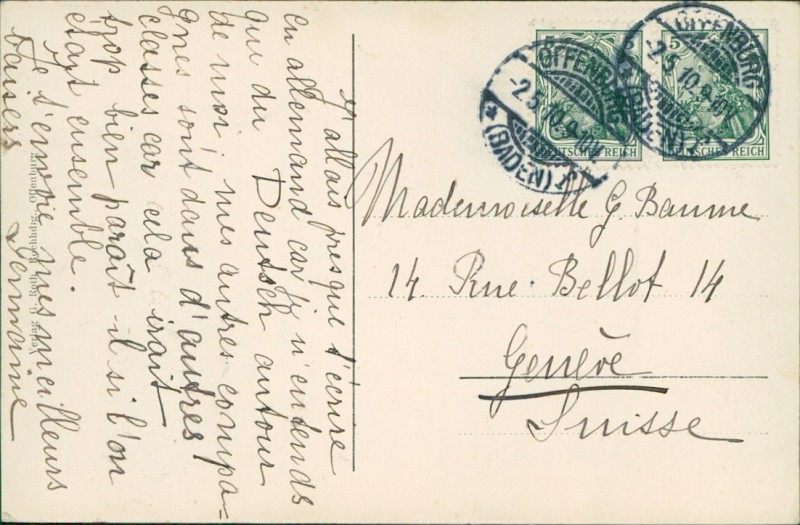 J'allais presque t'écrire
en allemand car j'y n'entends
qui du Deutsch autour
de moi; mes autres compa-
gnes sont dans d'autres
classes car cela irait
trop bien paraît-il si l'on
était ensemble.
Je t'envoie mes meilleurs
baisers
Germaine
OFFENBURG
-2.5.10.9-10V.
*(BADEN)
OFFENBURG
-2.5.10.9-10V
*(BADEN)
5
5
DEUTSCHES REICH
DEUTSCHES REICH
Mademoiselle G. Baume
14. Rue Bellot 14
Genève
Suisse